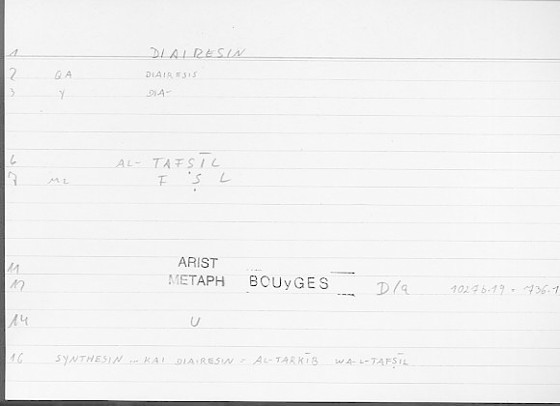 1 DIAIRESIN
2 QA DIAIRESIS
3 Y DIA-
6 AL- TAFṢĪL
7 ML F Ṣ L
11 ARIST
12 METAPH BOUyGES D/a 1027b.19 = 736.1
14 U
16 SYNTHESIN ... KAI DIAIRESIN = AL-TARKĪB WA-L-TAFṢĪL